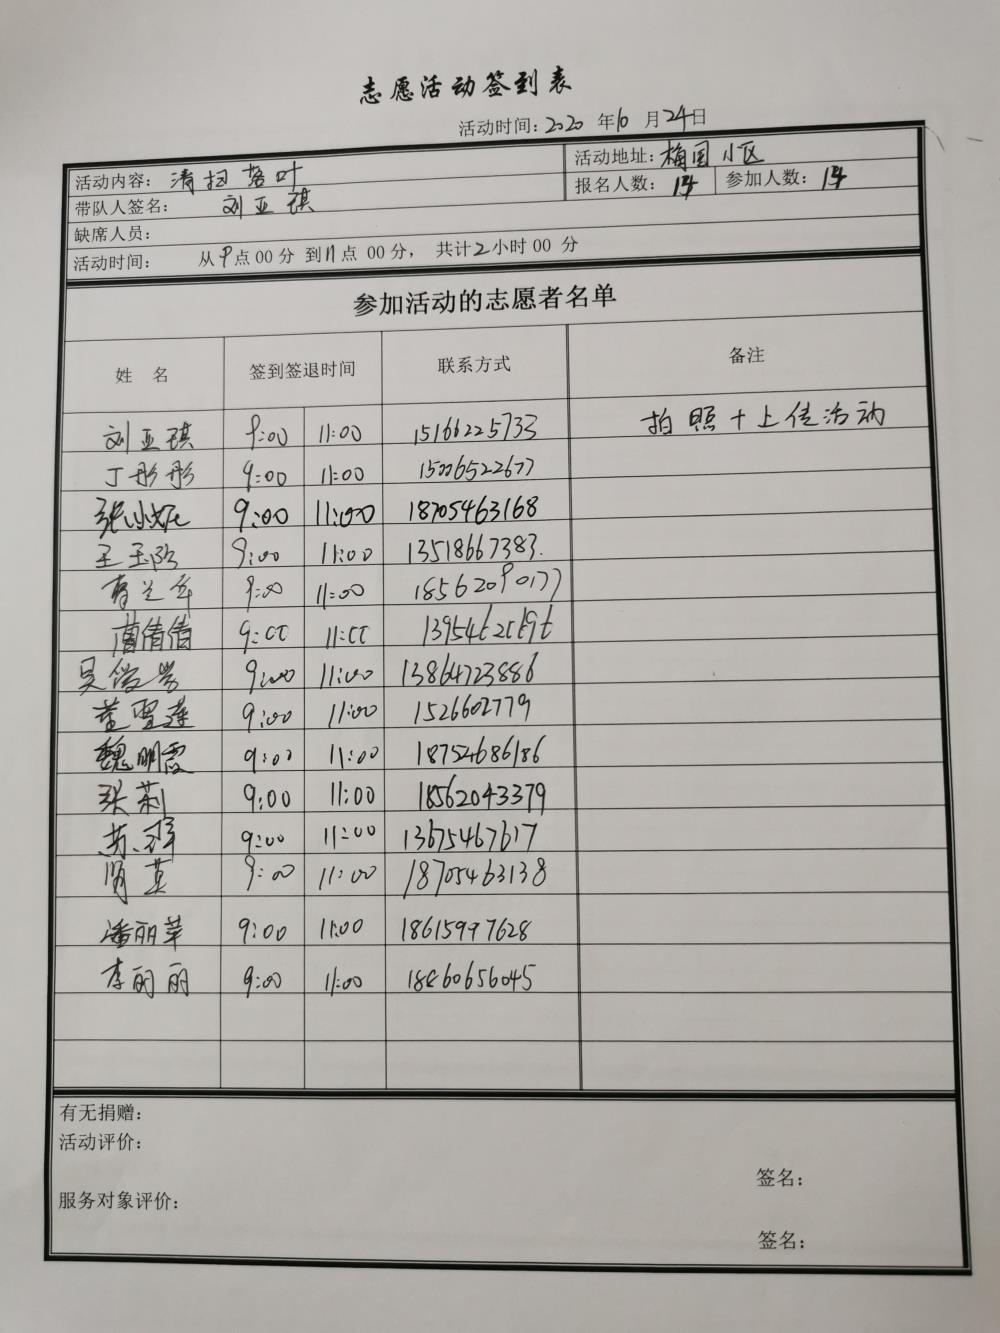 志愿活动签到表
活动时间:2020 年10 月24日
活动内容: 清扫落叶 活动地址:梅园小区
带队人签名: 刘亚琪 报名人数: 14 参加人数: 14
缺席人员:
活动时间: 从9点00分 到11点 00分, 共计2小时00 分
参加活动的志愿者名单
姓 名 签到签退时间 联系方式 备注
刘亚琪 9:00 11:00 15166225733 拍照+上传活动
丁彤彤 9:00 11:00 15006522677
9:00 11:00 18705463168
9:00 11:00 13518667383.
9:00 11:00 18562090177
倩倩 9:00 11:00
吴俊 9:00 11:00 13864723886
董雪莲 9:00 11:00 1526602779
魏明霞 9:00 11:00 18754686186
张莉 9:00 11:00 18562043379
苏 9:00 11:00 13675467617
9:00 11:00 18705463138
潘丽苹 9:00 11:00 18615997628
李丽丽 9:00 11:00
有无捐赠:
活动评价:
签名:
服务对象评价:
签名: